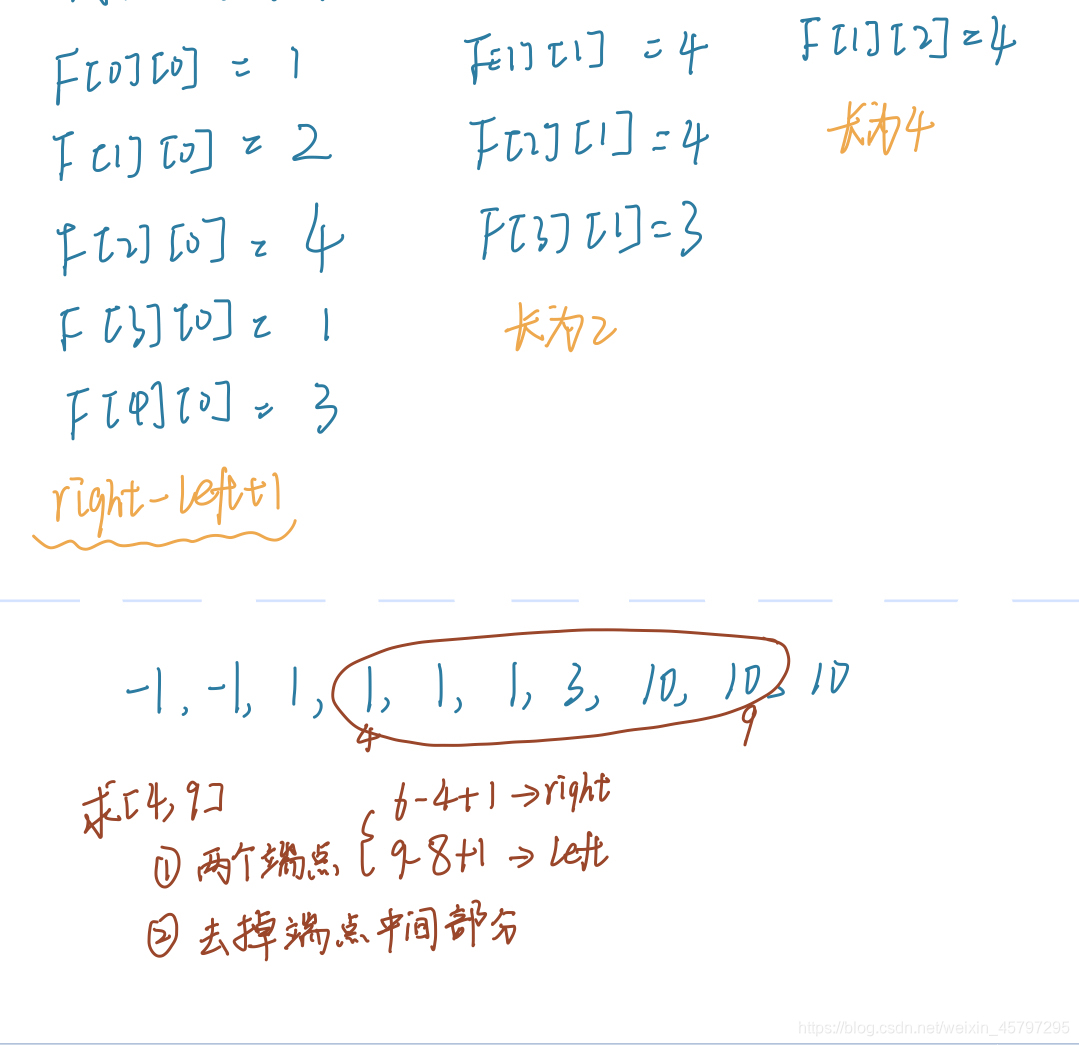 F[0][0] = 1
F[1][0] = 2
F[2][0] = 4
F[3][0] = 1
F[4][0] = 3
right-left+1
F[1][1] = 4
F[2][1] = 4
F[3][1] = 3
长为2
F[1][2] = 4
长为4
-1, -1, 1, 1, 1, 1, 3, 10, 10, 10
4 9
求[4,9]
① 两个端点 { 6-4+1 → right
9-8+1 → left
② 去掉端点中间部分
https://blog.csdn.net/weixin_45797295